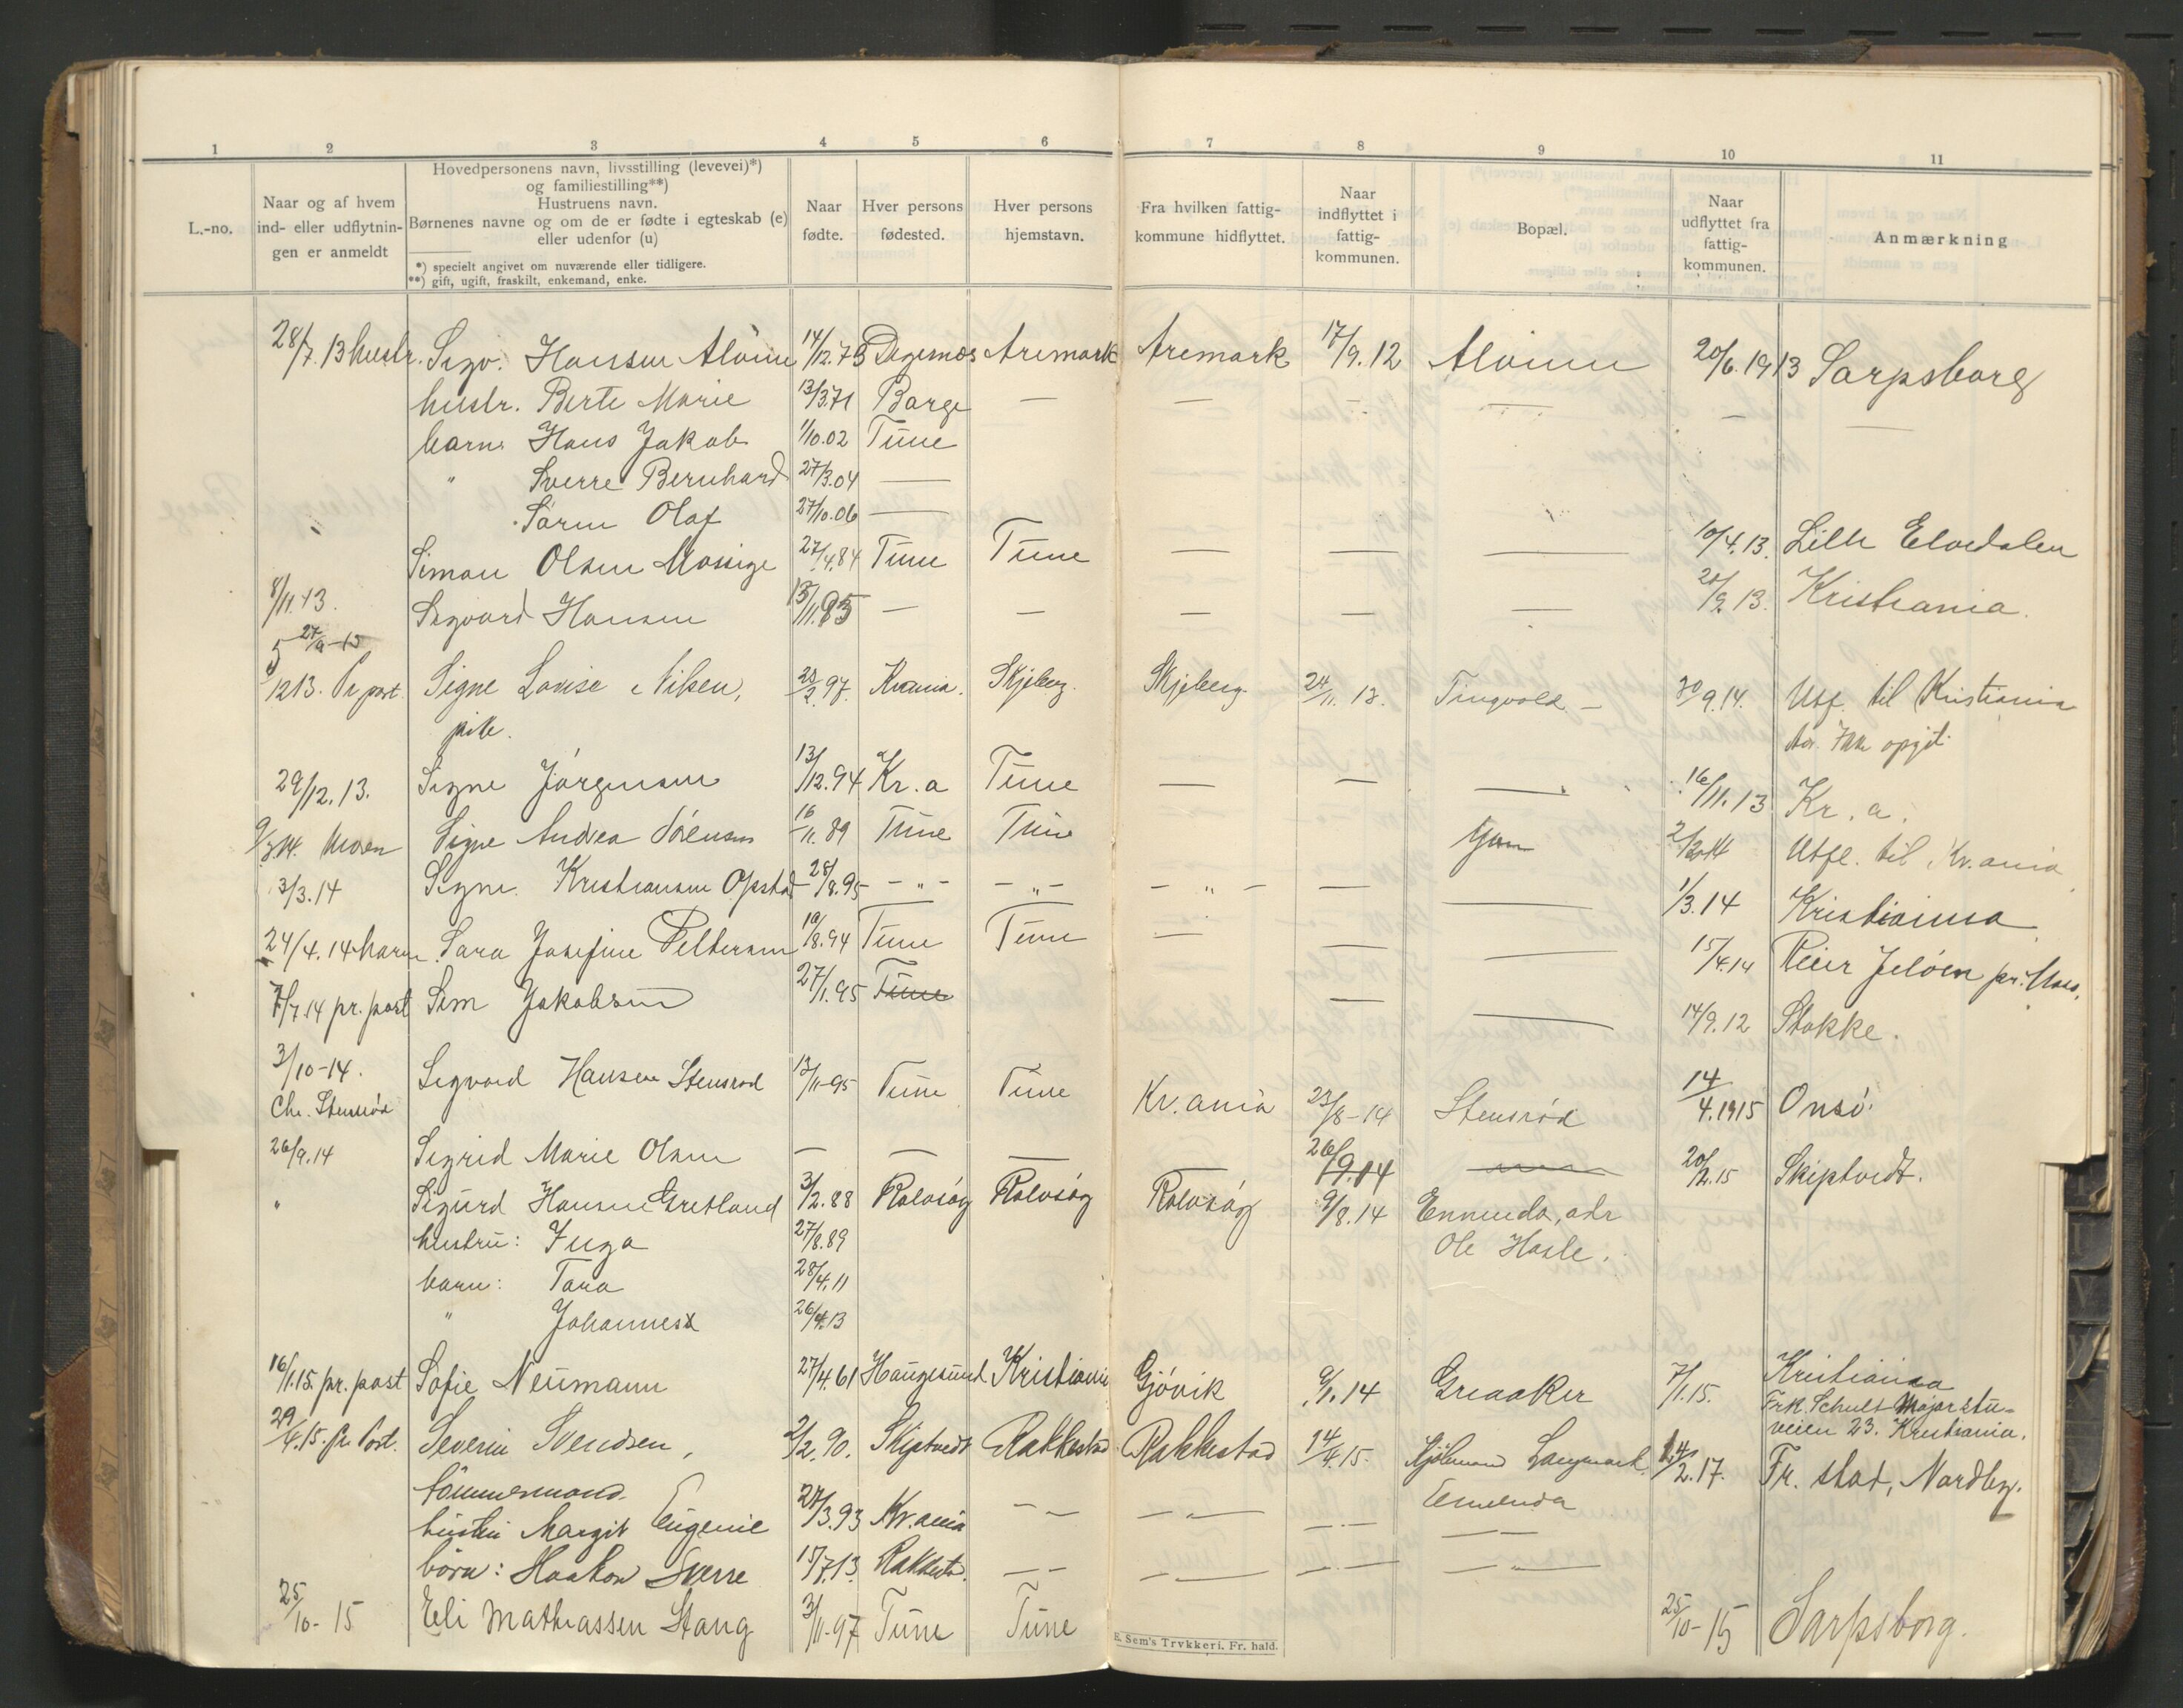 1 2 3 4 5 6 7 8 9 10 11
L.-no.
Naar og af hvem
ind- eller udflytnin-
gen er anmeldt
Hovedpersonens navn, livsstilling (levevei)*)
og familiestilling**)
Hustruens navn.
Børnenes navne og om de er fødte i egteskab (e)
eller udenfor (u)
*) specielt angivet om nuværende eller tidligere.
**) gift, ugift, fraskilt, enkemand, enke.
Naar
fødte.
Hver persons
fødested.
Hver persons
hjemstavn.
Fra hvilken fattig-
kommune hidflyttet.
Naar
indflyttet i
fattig-
kommunen.
Bopæl.
Naar
udflyttet fra
fattig-
kommunen.
Anmærkning
28/7.13 hustr. Sigv. Hansen 14/12.73 Degernes Aremark Aremark 17/9.12 20/6.1913 Sarpsborg
hustr. Berte Marie 13/3.71 Borge — — — — — —
barn: Hans Jakob 1/10.02 Tune
" Sverre Bernhard 27/3.04 —
Sørin Olaf 27/10.06 —
Simon Olsen 27/4.84 Tune Tune — — — 10/4.13. Lille Elvedalen
8/11.13. Sigvard Hansen 15/11.85 — — — — — 20/9.13. Kristiania.
27/9-15
5/1213. Pr post. Signe Lovise Nilsen, 23/2.97. Krania. Skjeberg. Skjeberg. 24/11.13. Tingvold — 30/9.14. Utf. til Kristiania
pike. adr. Ikke opgit.
29/12.13. Signe Jørgensen 13/12.94 Kr.a Tune — — — 16/11.13 Kr.a.
9/3.14. Signe Andrea Sørensen 16/11.89 Tune Tune 2/3.14 Utfl. til Kr.ania
3/3.14 Signe Kristiansen Opstad 28/8.95 - " - - " - - " - — — 1/3.14 Kristiania
24/4.14 Sara Josefine Pettersen 19/8.94 Tune Tune — — — 15/4.14 Reier Jeløen pr. Moss.
7/7.14 pr. post Sem Jakobsen 27/1.95 Tune — — 14/9.12 Stokke.
3/10-14. Sigvard Hansen Stensrød 13/11-95 Tune Tune Kr.ania 23/8-14 Stensrød 14/4.1915 Onsø.
Chr. Stensrød
26/9.14 Sigrid Marie Olsen — — — 26/9.14 — 20/2.15 Skiptvedt.
" Sigurd Hansen Gretland 3/2.88 Rolvsøy Rolvsøy Rolvsøy 9/8.14 Enmenda, adr
hustru: Inga 27/8.89 Ole Hasle.
barn: Tora 28/4.11
" Johannes 26/4.13
16/1.15. pr. post Sofie Neumann 27/4.61 Haugesund Kristiania Gjøvik 9/1.14 Greaaker 7/1.15. Kristiania
Frk. Schult Majorstu-
veien 23. Kristiania.
29/4.15. pr Post. Severin Svendsen, 2/2.90. Skiptvedt Rakkestad Rakkestad 14/4.15. Langmark 14/2.17. Fr. stad, Nordby.
tømmermand. Enmenda
hustru Margit Eugenie 27/3.93 Kr.ania — — — " — — — — —
børn: Haakon Sverre 15/7.13. Rakkesta. — — — " — — — — " —
25/10-15 Eli Mathiassen Stang 3/11-97 Tune Tune 25/10-15 Sarpsborg.
E. Sem's Trykkeri. Fr. hald.